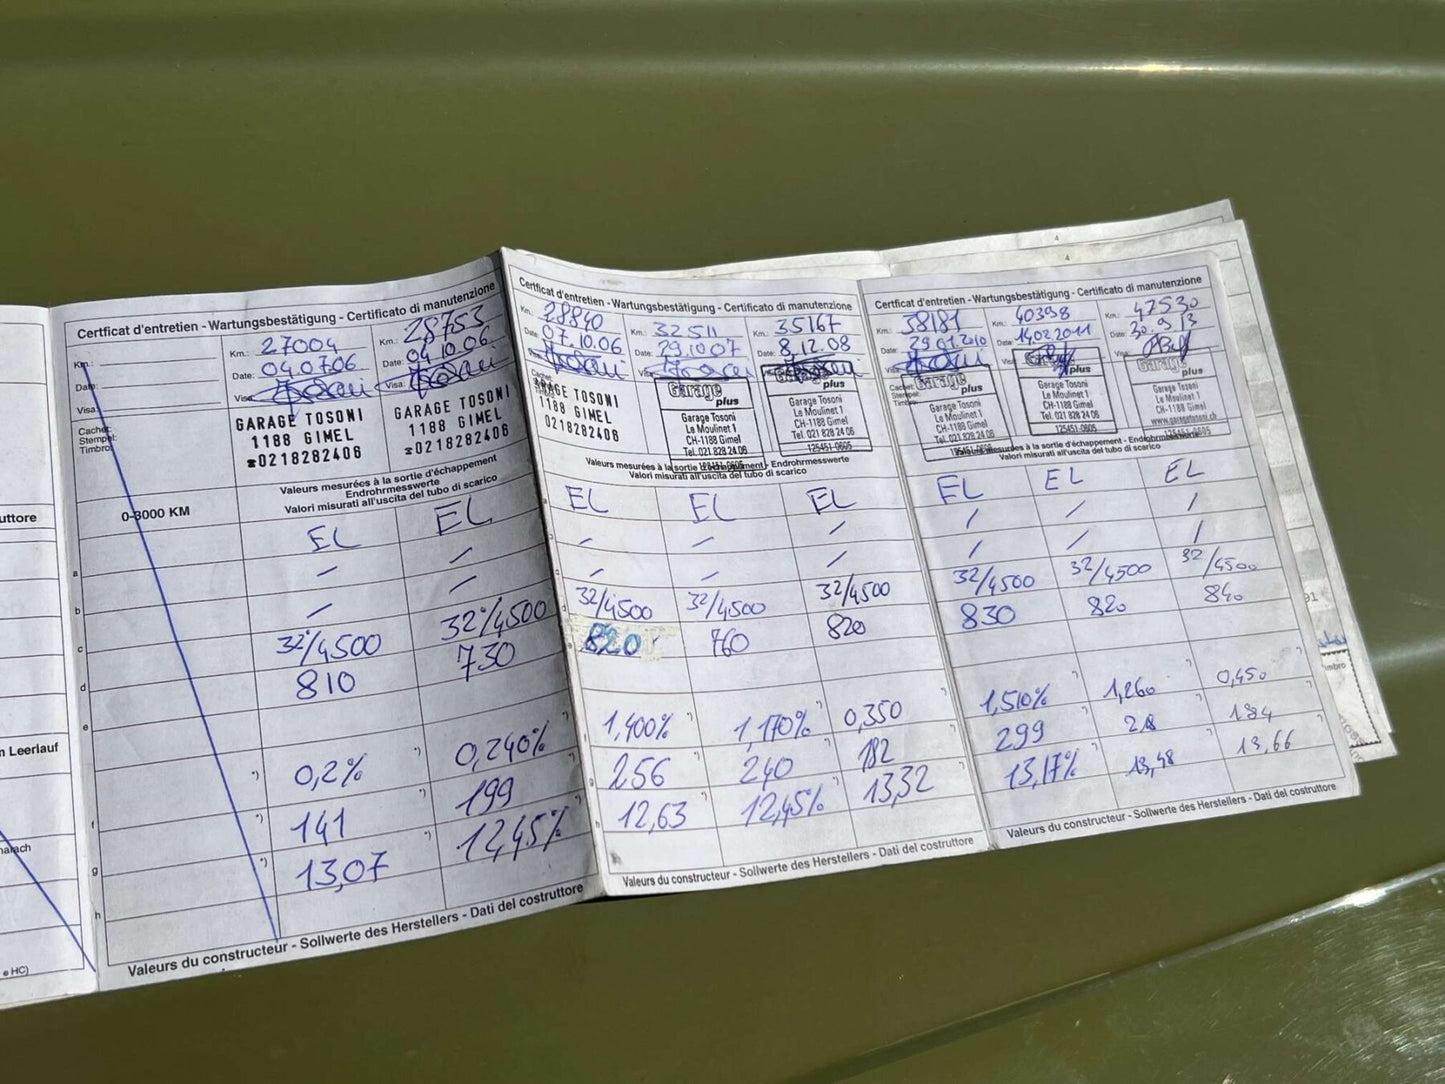 uttore
n Leerlauf
harach
e HC)
Certficat d'entretien - Wartungsbestätigung - Certificato di manutenzione
Km.:
Date:
Visa:
Cachet
Stempel:
Timbro:
Km.: 27004
Date: 04.07.06
Visa:
GARAGE TOSONI
1188 GIMEL
☎0218282406
Km.: 28753
Date: 04.10.06.
Visa:
GARAGE TOSONI
1188 GIMEL
☎0218282406
Valeurs mesurées à la sortie d'échappement
Endrohrmesswerte
Valori misurati all'uscita del tubo di scarico
0-3000 KM
EL EL
a / /
b / /
c 32/4500 32/4500
d 810 730
e
*) 0,2% *) 0,240% *)
f *) 141 *) 199
g *) 13,07 12,45%
h
Valeurs du constructeur - Sollwerte des Herstellers - Dati del costruttore
Certficat d'entretien - Wartungsbestätigung - Certificato di manutenzione
Km.: 28840
Date: 07.10.06
Visa:
Cachet
GARAGE TOSONI
1188 GIMEL
0218282406
Km.: 32511
Date: 29.10.07
Visa:
Garage
plus
Garage Tosoni
Le Moulinet 1
CH-1188 Gimel
Tel. 021 828 24 06
125451-0605
Km.: 35167
Date: 8.12.08
Garage
plus
Garage Tosoni
Le Moulinet 1
CH-1188 Gimel
Tel. 021 828 24 06
125451-0605
Valeurs mesurées à la sortie d'échappement - Endrohrmesswerte
Valori misurati all'uscita del tubo di scarico
EL EL EL
/ / /
/ / /
32/4500 32/4500 32/4500
820 760 820
1,400% 1,170% 0,350
256 240 182
12,63 12,45% 13,32
Valeurs du constructeur - Sollwerte des Herstellers - Dati del costruttore
Certficat d'entretien - Wartungsbestätigung - Certificato di manutenzione
Km.: 38181
Date: 29.01.2010
Visa:
Cachet
Stempel:
Timbro:
Garage
plus
Garage Tosoni
Le Moulinet 1
CH-1188 Gimel
Tel. 021 828 24 06
Km.: 40398
Date: 14.02.2011
Visa:
Garage
plus
Garage Tosoni
Le Moulinet 1
CH-1188 Gimel
Tel. 021 828 24 06
125451-0605
Km.: 47530
Date: 30.9.13
Visa:
Garage
plus
Garage Tosoni
Le Moulinet 1
CH-1188 Gimel
125451-0605
Valeurs mesurées à la sortie d'échappement - Endrohrmesswerte
Valori misurati all'uscita del tubo di scarico
EL EL EL
/ / /
/ / /
32/4500 32/4500 32/4500
830 820 840
1,510% 1,260 0,450
299 218 184
13,17% 13,48 13,66
Valeurs du constructeur - Sollwerte des Herstellers - Dati del costruttore
4
4